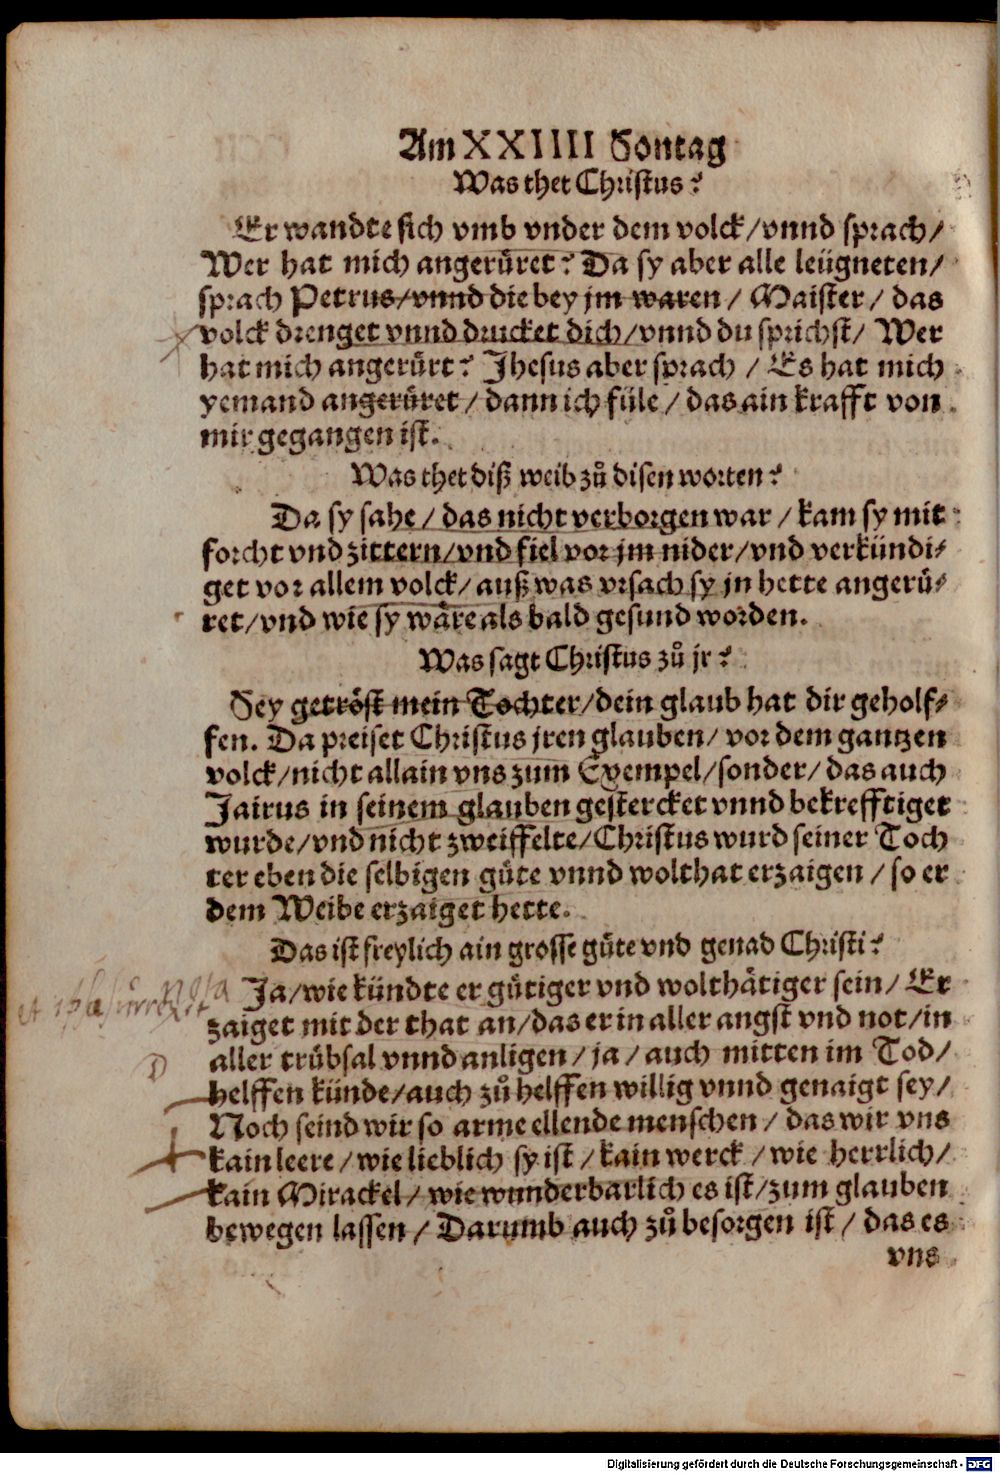 Am XXIIII Sontag
Was thet Christus?
Er wandte sich vmb vnder dem volck/vnnd sprach/
Wer hat mich angerůret? Da sy aber alle leügneten/
sprach Petrus/vnnd die bey jm waren / Maister / das
volck drenget vnnd drucket dich/vnnd du sprichst/ Wer
hat mich angerůrt? Jhesus aber sprach / Es hat mich
yemand angerůret / dann ich füle / das ain krafft von
mir gegangen ist.
Was thet diß weib zů disen worten?
Da sy sahe / das nicht verborgen war / kam sy mit
forcht vnd zittern/vnd fiel vor jm nider/vnd verkündi-
get vor allem volck/ auß was vrsach sy jn hette angerů-
ret/vnd wie sy wåre als bald gesund worden.
Was sagt Christus zů jr?
Sey getröst mein Tochter/dein glaub hat dir geholf-
fen. Da preiset Christus jren glauben/ vor dem gantzen
volck/nicht allain vns zum Exempel/sonder/ das auch
Jairus in seinem glauben gestercket vnnd bekrefftiget
wurde/vnd nicht zweiffelte/Christus wurd seiner Toch
ter eben die selbigen gůte vnnd wolthat erzaigen / so er
dem Weibe erzaiget hette.
Das ist freylich ain grosse gůte vnd genad Christi?
Ja/wie kündte er gůtiger vnd wolthåtiger sein/ Er
zaiget mit der that an/das er in aller angst vnd not/in
aller trübsal vnnd anligen / ja / auch mitten im Tod/
helffen künde/auch zů helffen willig vnnd genaigt sey/
Noch seind wir so arme ellende menschen / das wir vns
kain leere / wie lieblich sy ist / kain werck / wie herrlich/
kain Mirackel / wie wunderbarlich es ist/zum glauben
bewegen lassen / Darumb auch zů besorgen ist / das es
vns
nota
D
Digitalisierung gefördert durch die Deutsche Forschungsgemeinschaft - DFG